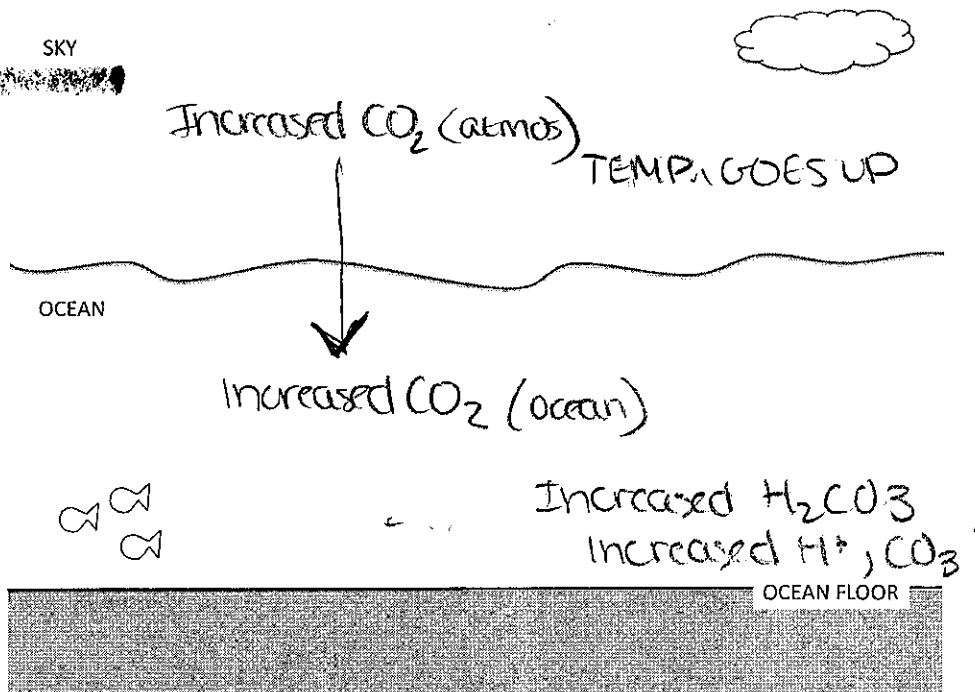 SKY
Increased CO₂ (atmos)
TEMP. GOES UP
OCEAN
Increased CO₂ (ocean)
Increased H₂CO3
Increased H⁺, CO₃
OCEAN FLOOR